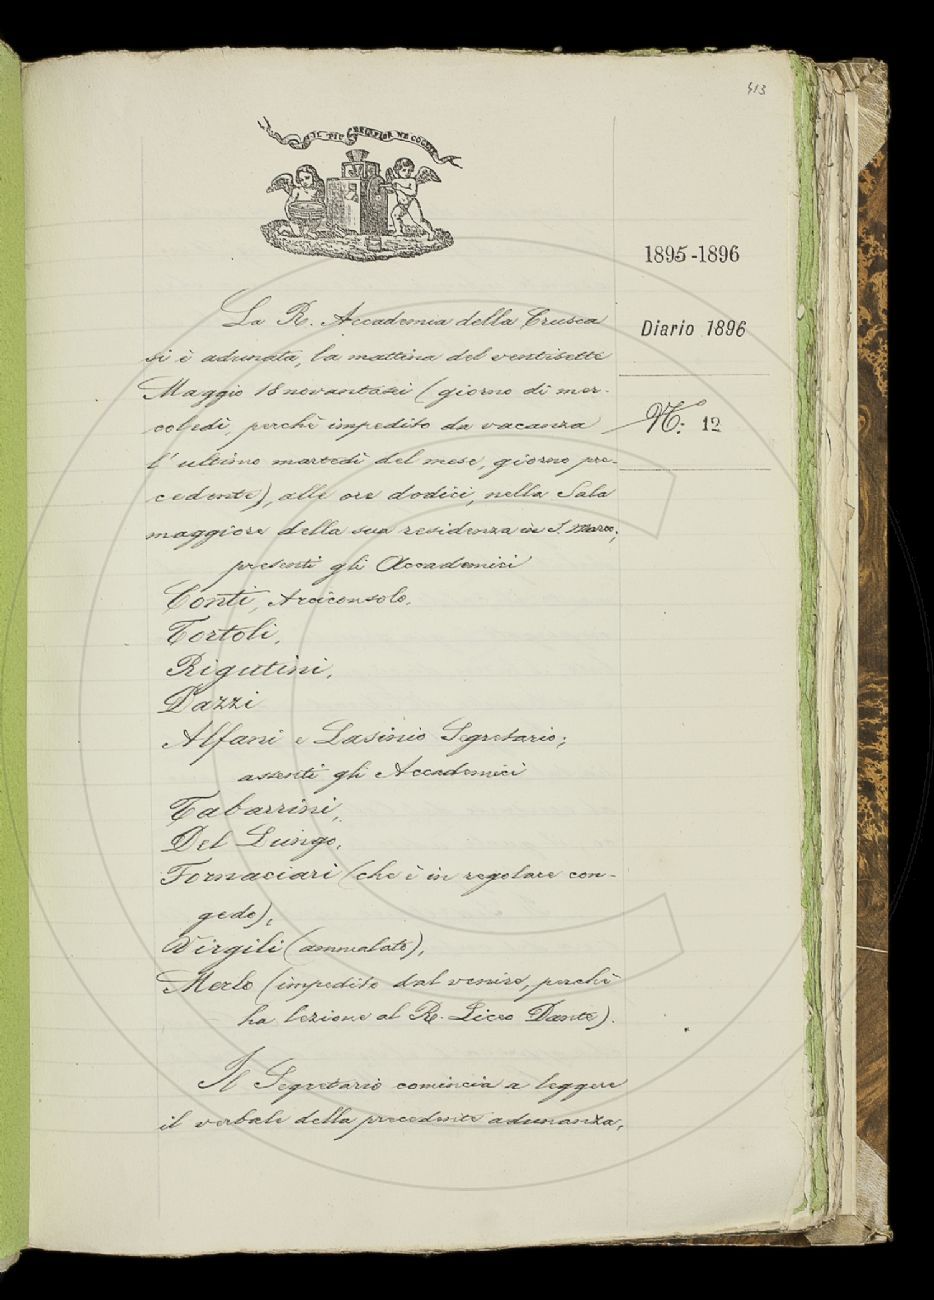 413
IL PIÙ BEL FIOR NE COGLIE
1895-1896
Diario 1896
N.: 12
La R. Accademia della Crusca
si è adunata, la mattina del ventisette
Maggio 18novantasei (giorno di mer-
coledì, perchè impedito da vacanza
l'ultimo martedì del mese, giorno pre-
cedente), alle ore dodici, nella Sala
maggiore della sua residenza in S. Marco;
presenti gli Accademici
Conti, Arciconsolo,
Tortoli,
Rigutini,
Dazzi
Alfani e Lasinio Segretario;
assenti gli Accademici
Tabarrini,
Del Lungo,
Fornaciari (che è in regolare con-
gedo),
Virgili (ammalato),
Merlo (impedito dal venire, perchè
ha lezione al R. Liceo Dante).
Il Segretario comincia a leggere
il verbale della precedente adunanza,